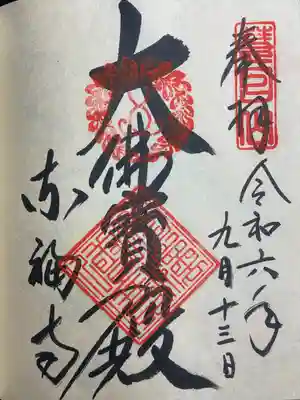 奉拝
令和六年
九月十三日
大佛寳殿
東福寺